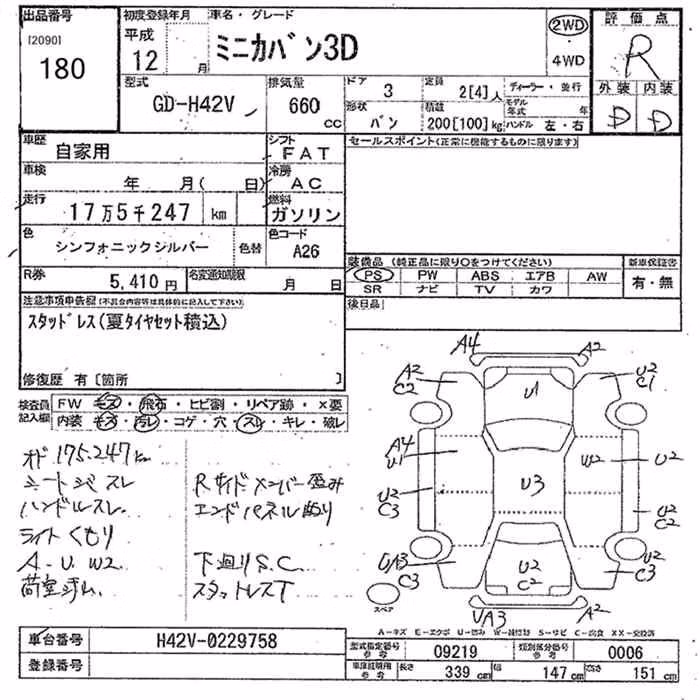 出品番号 初度登録年月 車名・グレード 評価点
[2090] 平成 2WD
180 12 月 ミニカバン3D 4WD R
型式 排気量 ドア 3 定員 2[4]人 ディーラー・並行 外装 内装
GD-H42V 660 cc 形状 バン 積載 200[100]kg モデル年式 年 ハンドル 左・右 D D
車歴 自家用 シフト FAT セールスポイント(正常に機能するものに限ります)
車検 年 月( 日) 冷房 AC
走行 17万5千247 km 燃料 ガソリン
色 シンフォニックシルバー 色替 色コード A26
装備品 (純正品に限り○をつけてください) 新車保証書
R券 5,410円 名変通知期限 月 日 PS PW ABS エアB AW 有・無
SR ナビ TV カワ
注意事項申告欄(不具合内容等は具体的に記入して下さい) 後日品
スタッドレス(夏タイヤセット積込)
修復歴 有 [箇所 ]
検査員記入欄 FW キズ・飛石・ヒビ割・リペア跡・×要
内装 キズ・汚レ・コゲ・穴・スレ・キレ・破レ
オド 175.247 km
シートシミスレ Rサイドメンバー歪み
ハンドルスレ エンドパネル曲り
ライトくもり
A.U.W2 下廻りS.C
スタットレスT
A4 A2
A2 C2 U1 U2 C1
A4 U1 W2 U2
U2 C3 U3 U2 C2
UA3 C3 U2 C2 U2 C3
スペア UA3 A2
A-キズ E-エクボ U-凹み W-補修跡 S-サビ C-腐食 XX-交換済
車台番号 H42V-0229758 型式指定番号 参考 09219 類別区分番号 参考 0006
登録番号 車庫証明用 参考 長さ 339 cm 幅 147 cm 高さ 151 cm